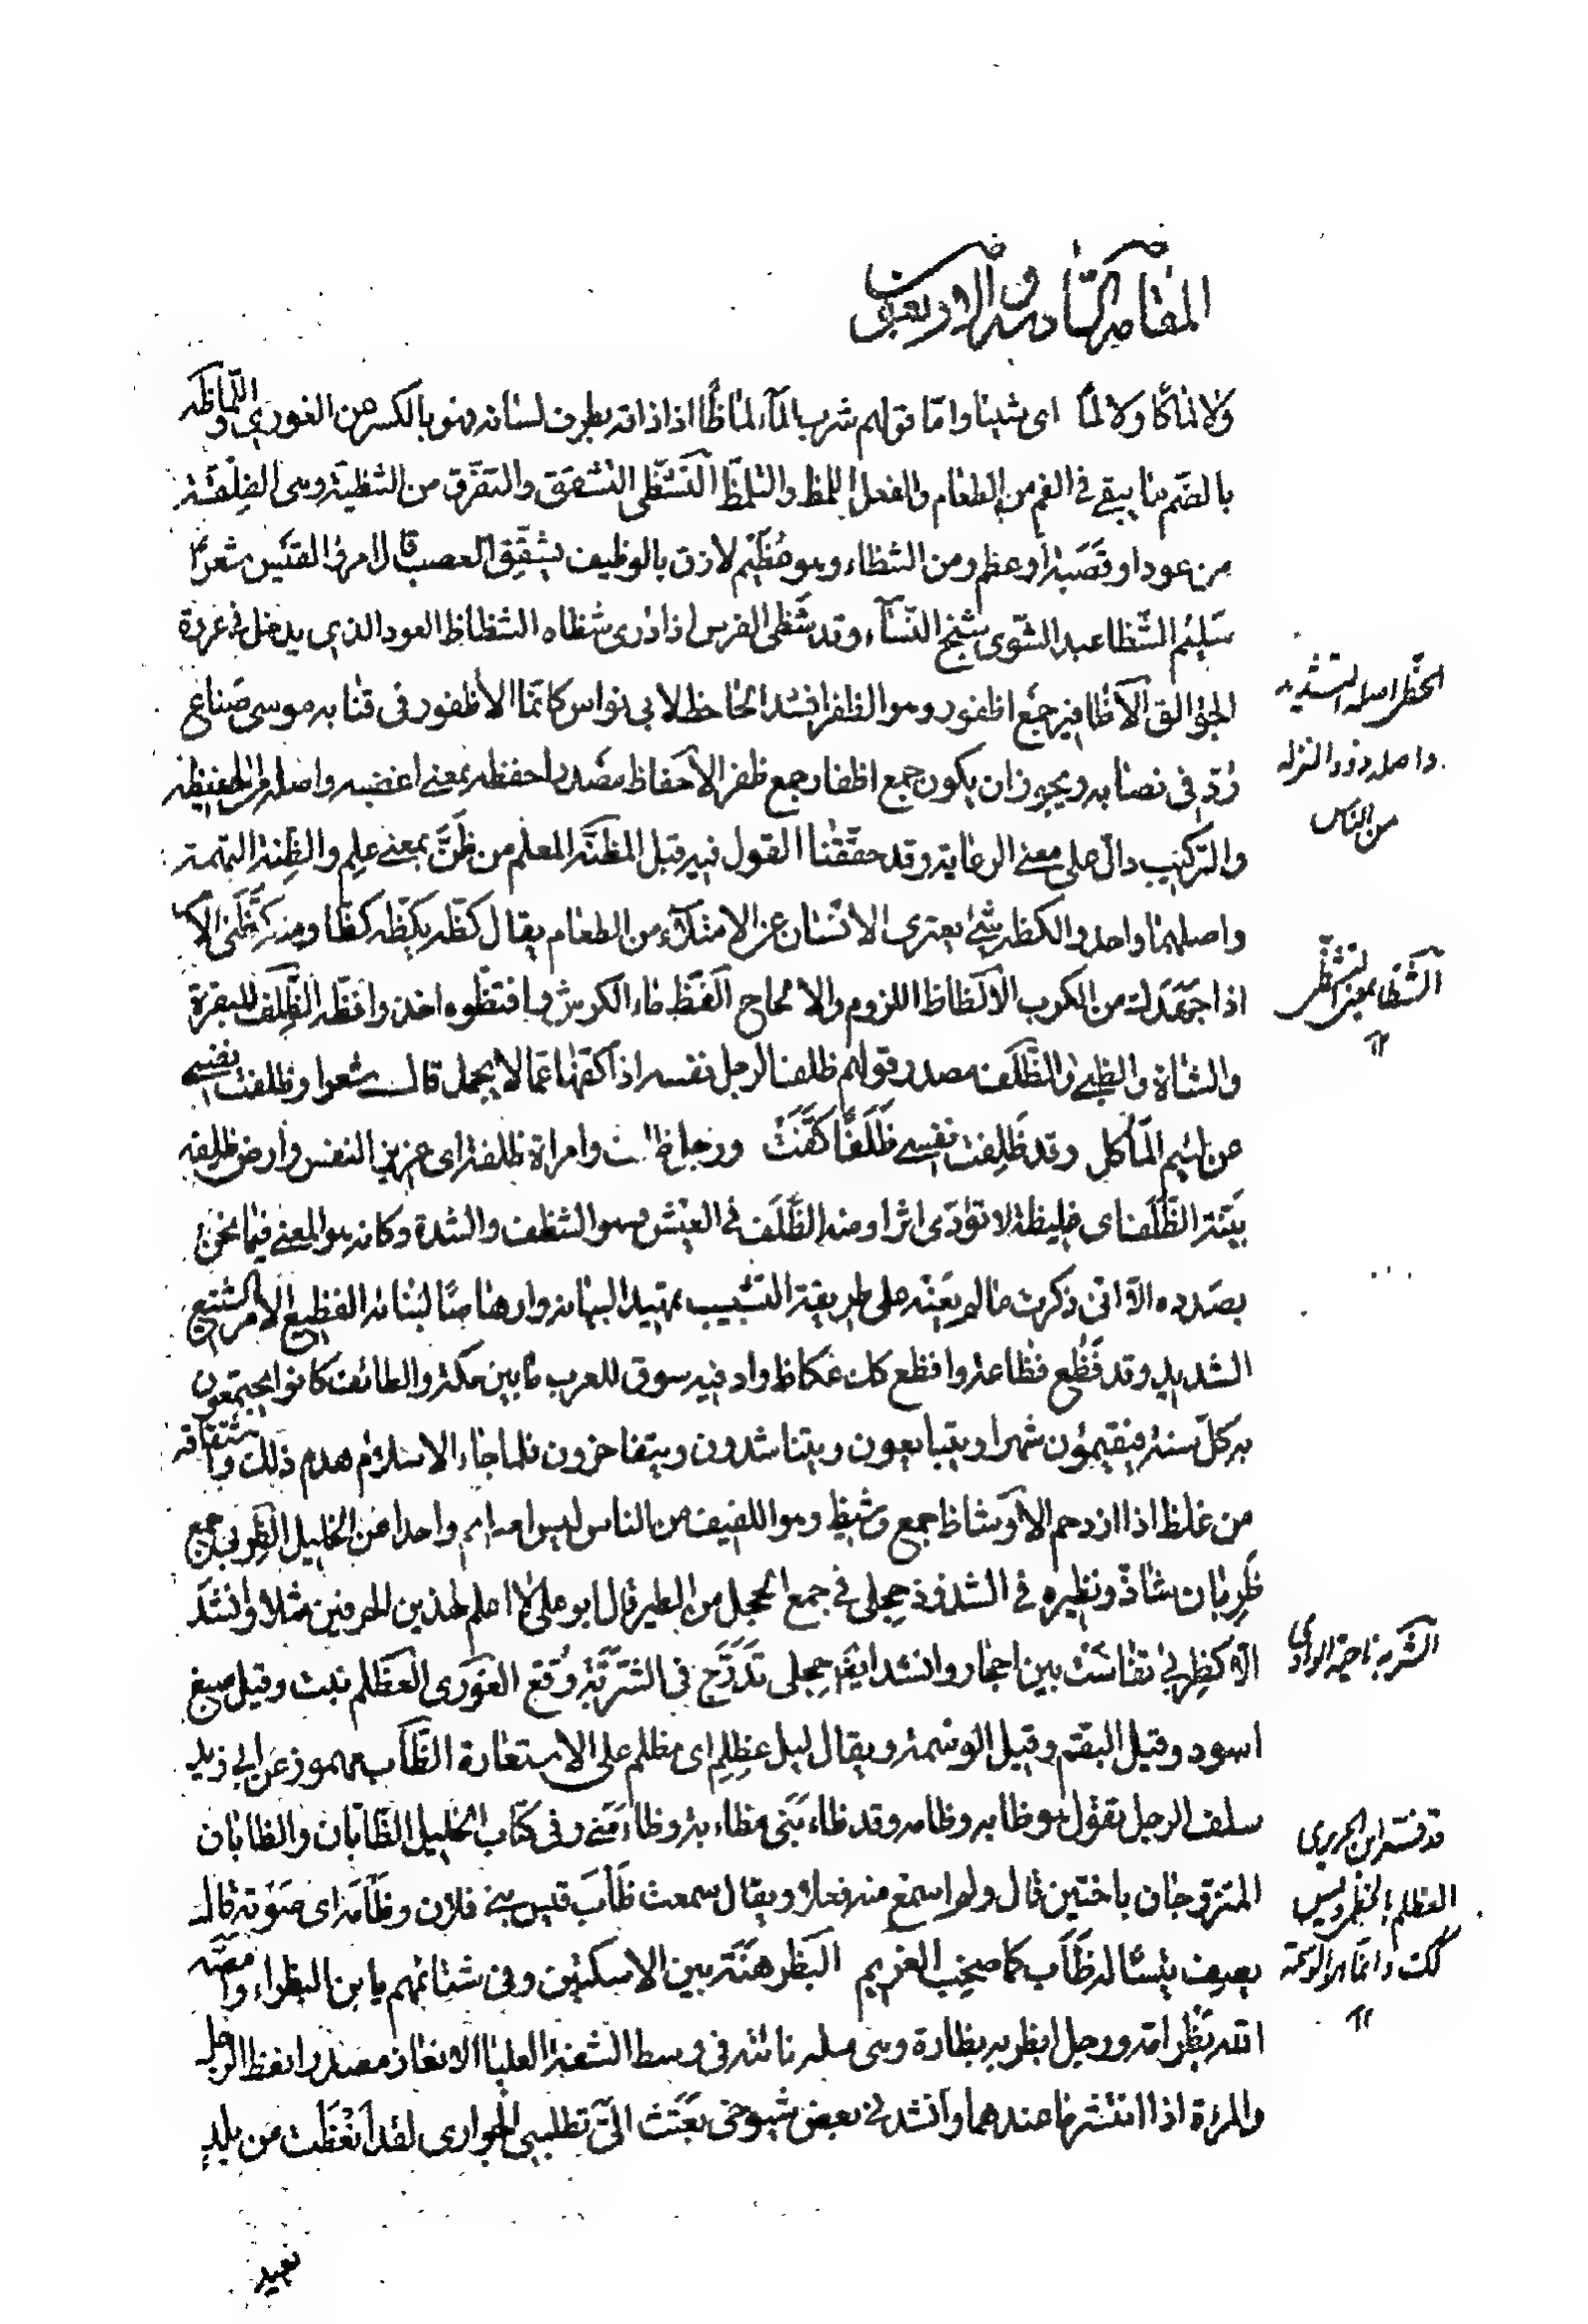 المقامة السادسة والاربعون
ولا لماكا ولا لما اى شيئا واما قولهم شرب الماء لماظا اذا ذاقه بطرف لسانه فهو بالكسر من الغورى واللماظة
بالضم ما يبقى فى الفم من الطعام والفعل اللمظ والتلمظ التشظى التشقق والتفرق من الشظية وهى الفلقة
من عود او قصبة او عظم ومن الشظاء وهو عظيم لازق بالوظيف يشقق العصب قال امرؤ القيس شعرا
سليم الشظا عبد الشوى شنج النساء وقد شظى الفرس اذا دوى شظاه الشظاظ العود الذى يدخل فى عروة
الجوالق الاظافير جمع اظفور وهو الظفر انشد الجاحظ لابى نواس كانما الاظفور فى قنابه موسى صناع
رد فى نصابه ويجوز ان يكون جمع اظفار جمع ظفر الاحفاظ مصدر احفظه بمعنى اغضبه واصله من الحفيظة
والتركيب دال على معنى الرعاية وقد حققنا القول فيه قبل المظنة المعلم من ظن بمعنى علم والظنة التهمة
واصلهما واحد والكظة شئ يعترى الانسان عن الامتلاء من الطعام يقال كظه يكظه كظا ومنه كظنى الامر
اذا جهدك من الكرب الالظاظ اللزوم والالحاح الفظ ماء الكرش وافتظوه اخذوا فظه الظلف للبقرة
والشاة والظبى والظلف مصدر قولهم ظلف الرجل نفسه اذا كفها عما لا يجمل قال شعرا وظلفت نفسى
عن لئيم المأكل وقد ظلفت نفسى ظلفا كفت ورجل ظلف وامراة ظلفة اى عزيز النفس وارض ظلفة
بينة الظلف اى غليظة لا تؤدى اثرا ومنه الظلف فى العيش وهو الشظف والشدة وكانه هو المعنى فيما نحن
بصدده الا انى ذكرت ما لم يعنه على طريقة التشبيب تمهيدا لبيانه وارهاصا لبنائه الفظيع الامر الشنيع
الشديد وقد فظع فظاعة وافظع كك عكاظ واد فيه سوق للعرب ما بين مكة والطائف كانوا يجتمعون
به كل سنة فيقيمون شهرا ويتبايعون ويتناشدون ويتفاخرون فلما جاء الاسلام هدم ذلك واشتقاقه
من عكظ اذا ازدحم الاوشاظ جمع وشيظ وهو اللفيف من الناس ليس اصلهم واحدا عن الخليل الظربى جمع
ظربان شاذ ونظيره فى الشذوذ حجلى فى جمع الحجل من الطير قال ابو على لا اعلم لهذين الحرفين مثلا وانشد
الا كظربى تفاست بين احجار وانشد ايضا حجلى تدرج فى الشربة وقع الغورى العظلم نبت وقيل صبغ
اسود وقيل البقم وقيل الوسمة ويقال ليل عظلم اى مظلم على الاستعارة الظأب مهموز عن ابى زيد
سلف الرجل تقول هو ظابه وظامه وقد ظاءبنى مظاءبة وظاءمنى وفى كتاب الخليل الظابان والظامان
المتزوجان باختين قال ولم اسمع منه فعلا ويقال سمعت ظأب تيس بنى فلان وظأمه اى صوته قال
يصف تيسا له ظأب كما صخب الغريم البظر هنة بين الاسكتين وفى شتائمهم يا ابن البظراء وامصه
الله بظر امه ورجل ابظر به بظارة وهى هنة ناتئة فى وسط الشفة العليا الانعاظ مصدر انعظ الرجل
والمرءة اذا انتشر ما عندهما وانشد لى بعض شيوخى بعثت الى تطلبنى الجوارى لقد انعظت من بلد
بعيد
الحظر اصله التشديد
من الناس
التشظى بمعنى التشظر
الشربة ناحية الوادى
قد فسره ابن الحريرى
العظلم بالخطر وليس
كك وانما هو الوسمة